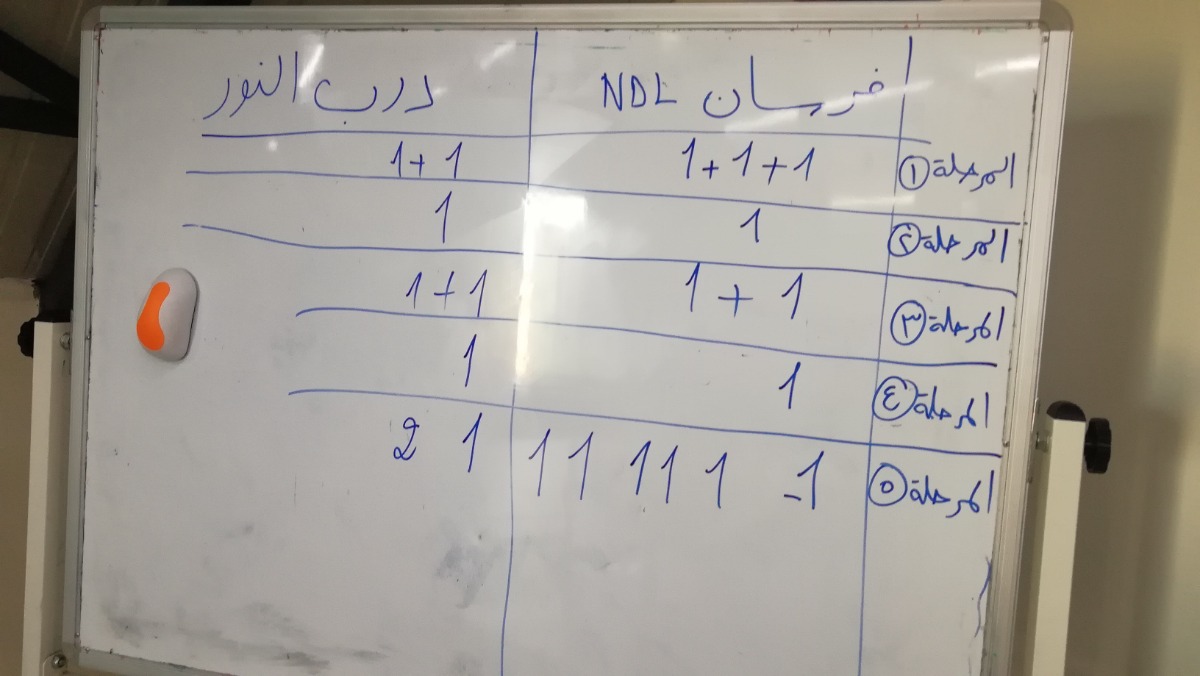 فرسان NDL درب النور
المرحلة ① 1+1+1 1+1
المرحلة ② 1 1
المرحلة ③ 1+1 1+1
المرحلة ④ 1 1
المرحلة ⑤ -1 1 1 1 1 1 1 2